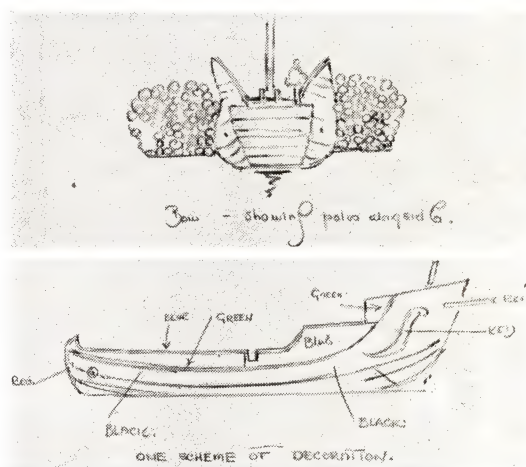 Bow - showing poles alongside.
GREEN
BLUE
GREEN
Blue
RED
RED
BLACK.
BLACK.
ONE SCHEME OF DECORATION.